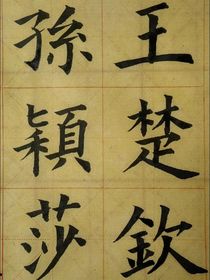 王楚欽
孫穎莎